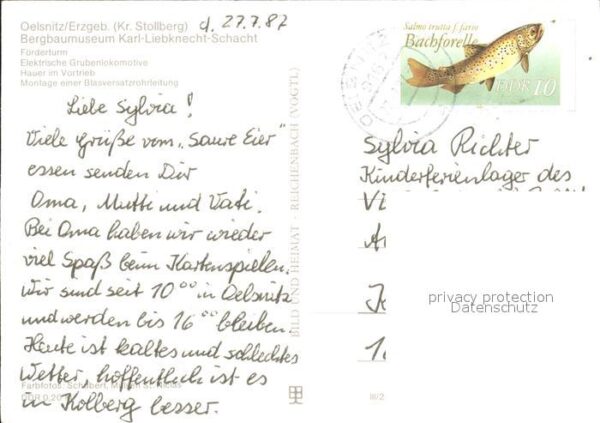 Oelsnitz/Erzgeb. (Kr. Stollberg)
Bergbaumuseum Karl-Liebknecht-Schacht
Förderturm
Elektrische Grubenlokomotive
Hauer im Vortrieb
Montage einer Blasversatzrohrleitung
d. 27.7.87
Liebe Sylvia!
Viele Grüße vom "Saure Eier"
essen senden Dir
Oma, Mutti und Vati.
Bei Oma haben wir wieder
viel Spaß beim Kartenspielen.
Wir sind seit 10⁰⁰ in Oelsnitz
und werden bis 16⁰⁰ bleiben.
Heute ist kaltes und schlechtes
Wetter, hoffentlich ist es
in Kolberg besser.
Farbfotos: Schubert,
DDR 0,20
BILD UND HEIMAT · REICHENBACH (VOGTL)
III/2
Salmo trutta f. fario
Bachforelle
DDR 10
Sylvia Richter
Kinderferienlager des
privacy protection
Datenschutz